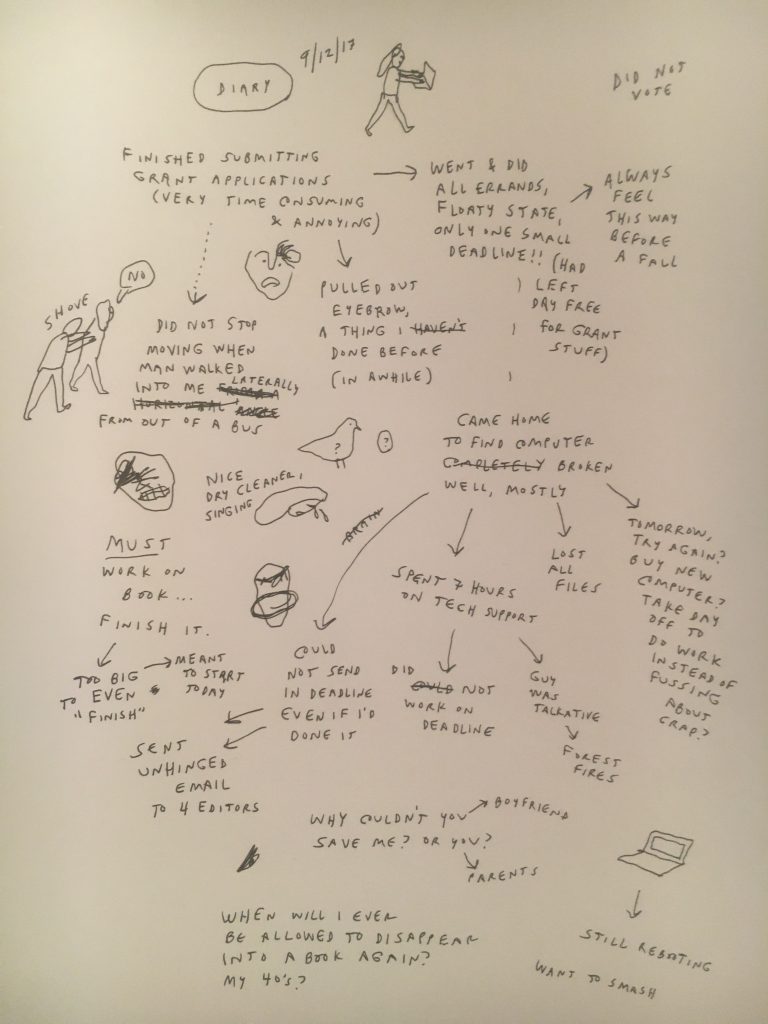 DIARY
9/12/17
DID NOT
VOTE
FINISHED SUBMITTING
GRANT APPLICATIONS
(VERY TIME CONSUMING
& ANNOYING)
WENT & DID
ALL ERRANDS,
FLOATY STATE,
ONLY ONE SMALL
DEADLINE!!
(HAD
LEFT
DAY FREE
FOR GRANT
STUFF)
ALWAYS
FEEL
THIS WAY
BEFORE
A FALL
NO
SHOVE
DID NOT STOP
MOVING WHEN
MAN WALKED
INTO ME LATERALLY
HORIZONTAL ANGLE
FROM OUT OF A BUS
PULLED OUT
EYEBROW,
A THING I HAVEN'T
DONE BEFORE
(IN AWHILE)
?
?
CAME HOME
TO FIND COMPUTER
COMPLETELY BROKEN
WELL, MOSTLY
NICE
DRY CLEANER,
SINGING
BRAIN
MUST
WORK ON
BOOK...
FINISH IT.
TOO BIG
TO EVEN
"FINISH"
MEANT
TO START
TODAY
COULD
NOT SEND
IN DEADLINE
EVEN IF I'D
DONE IT
SENT
UNHINGED
EMAIL
TO 4 EDITORS
SPENT 7 HOURS
ON TECH SUPPORT
DID
COULD NOT
WORK ON
DEADLINE
GUY
WAS
TALKATIVE
FOREST
FIRES
LOST
ALL
FILES
TOMORROW,
TRY AGAIN?
BUY NEW
COMPUTER?
TAKE DAY
OFF TO
DO WORK
INSTEAD OF
FUSSING
ABOUT
CRAP?
WHY COULDN'T YOU
SAVE ME? OR YOU?
BOYFRIEND
PARENTS
WHEN WILL I EVER
BE ALLOWED TO DISAPPEAR
INTO A BOOK AGAIN?
MY 40'S?
STILL REBOOTING
WANT TO SMASH